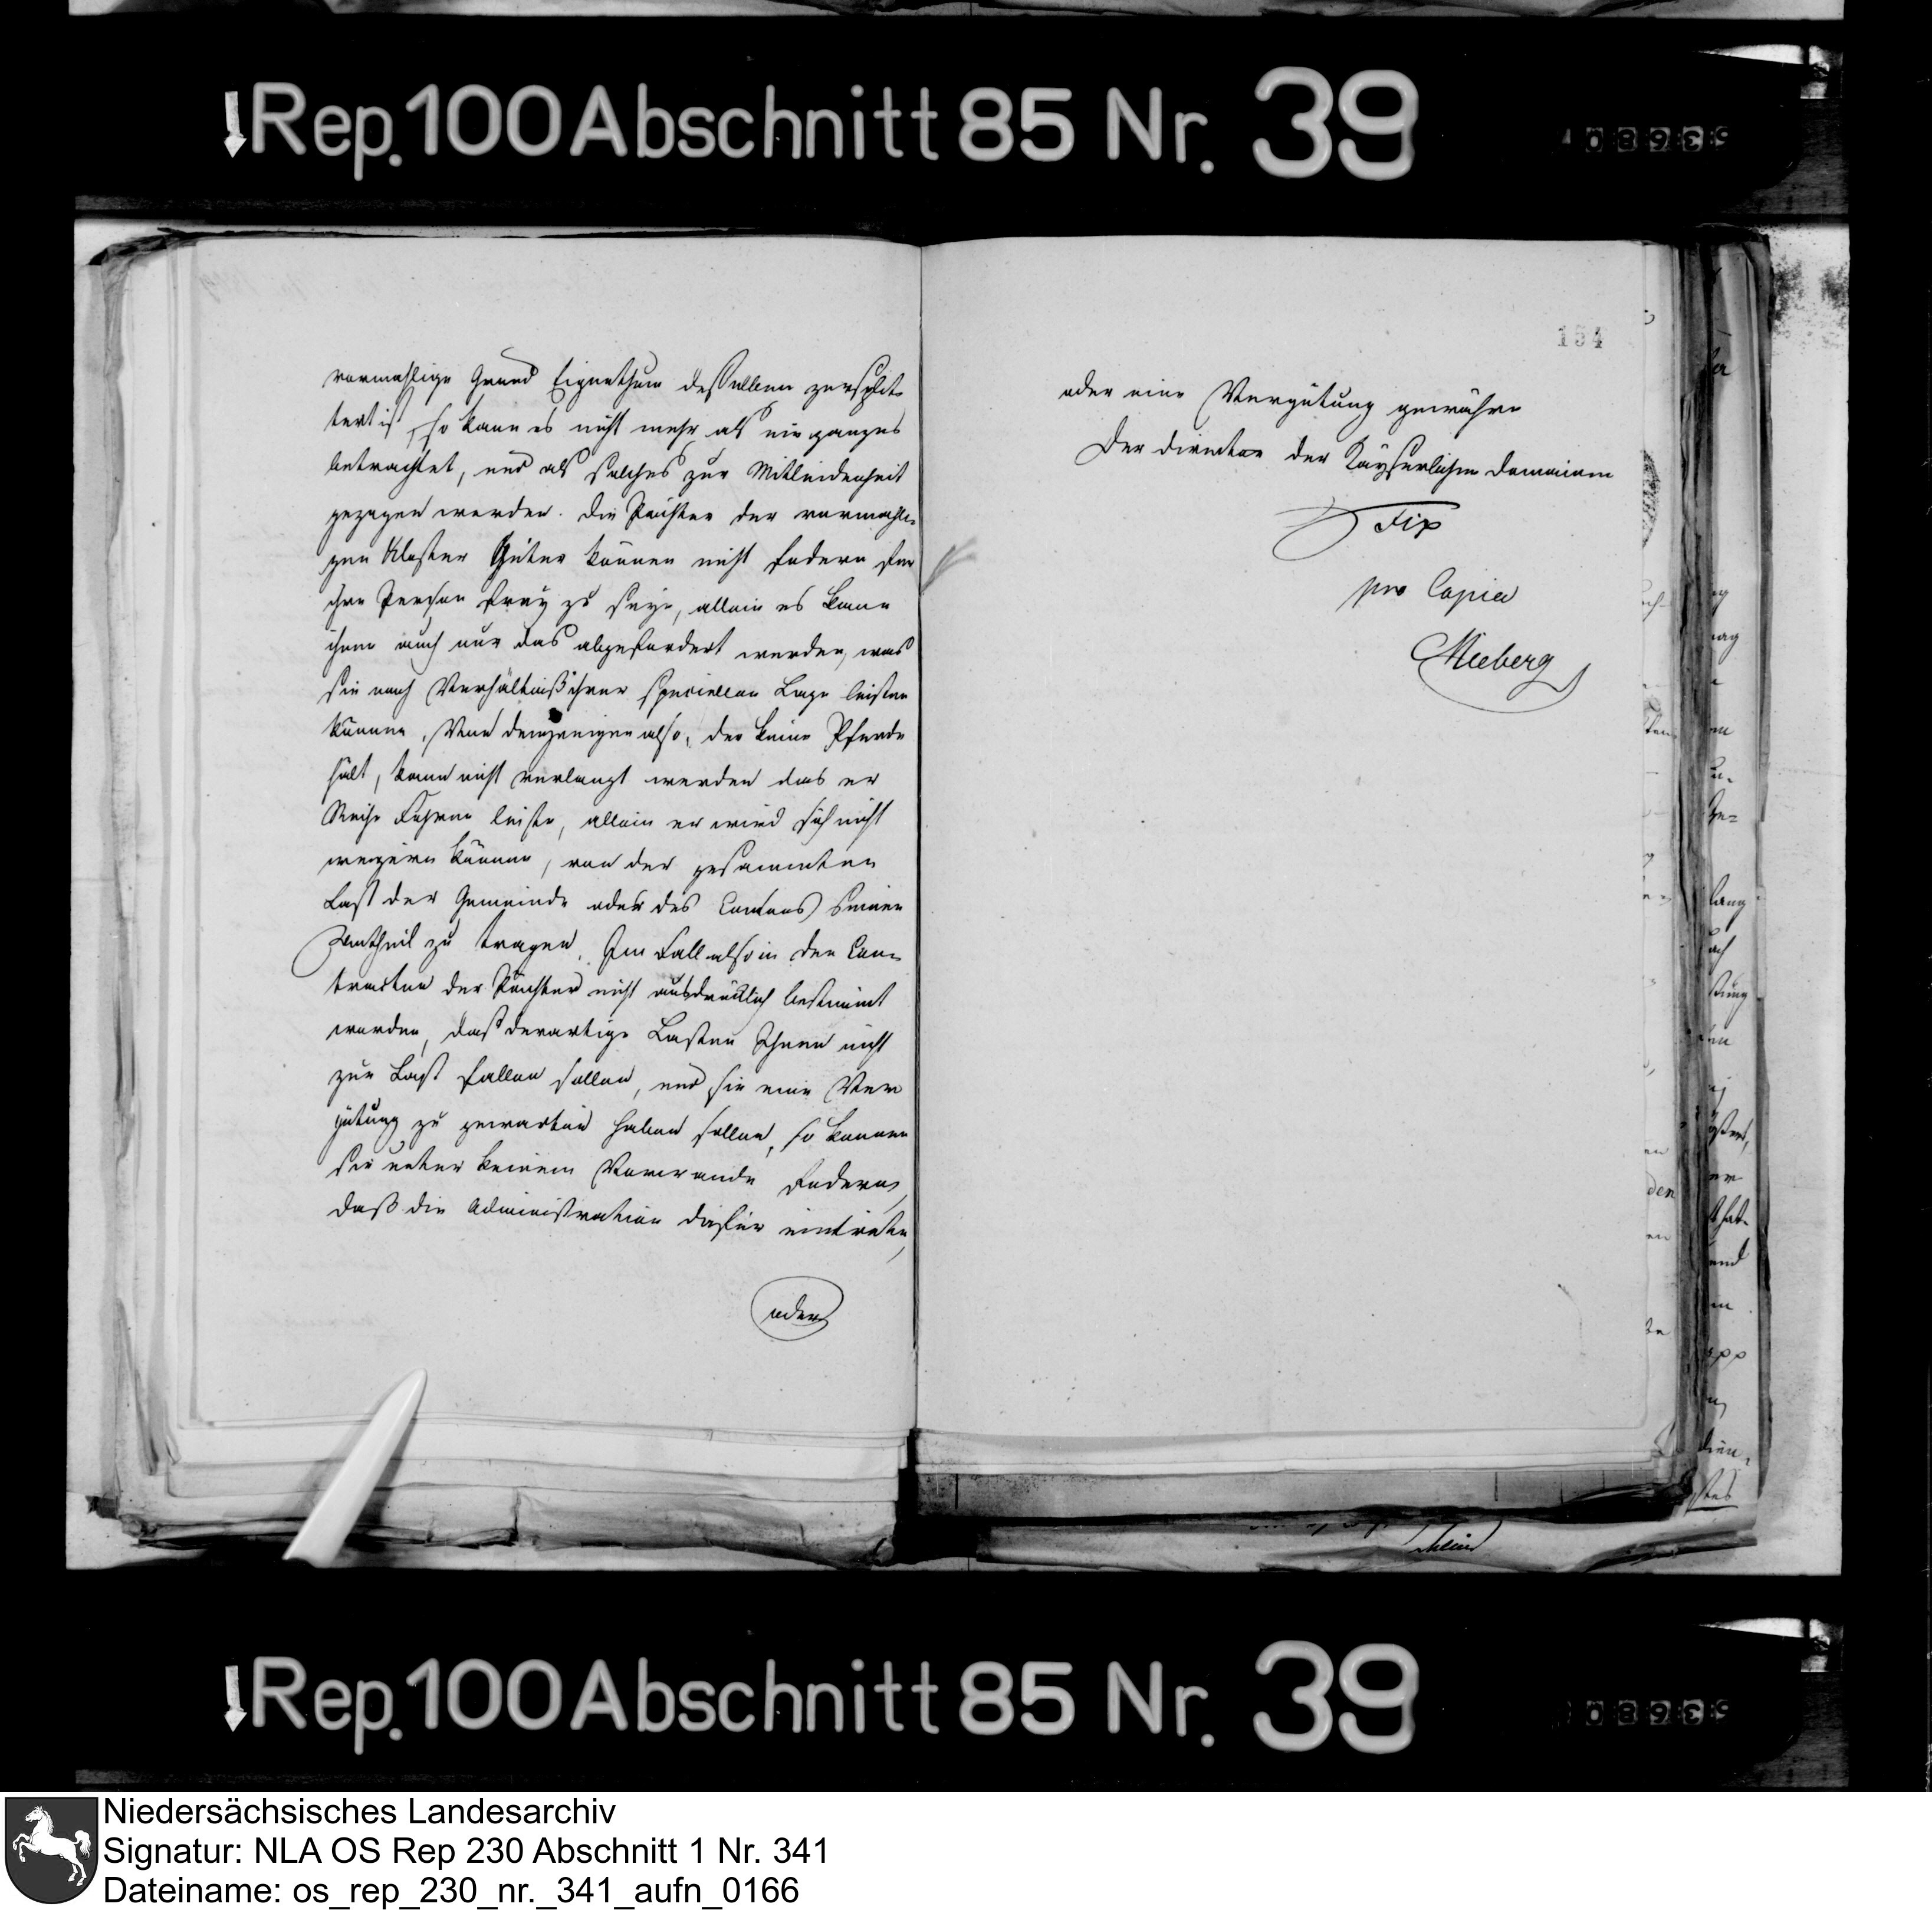 Rep. 100 Abschnitt 85 Nr. 39
vormahlige Grund Eigenthum desselben zersplit-
tert ist, so kann es nicht mehr als ein ganzes
betrachtet, und als solches zur Mitleidenheit
gezogen werden. Die Pächter der vormahli-
gen Kloster Güter können nicht fodern für
ihre Person frey zu seyn, allein es kann
ihnen auch nur das abgefordert werden, was
sie nach Verhältniß ihrer speciellen Lage leisten
können. Von demjenigen also, der keine Pferde
hält, kann nicht verlangt werden das er
Reihe Fuhren leiste, allein er wird sich nicht
weigern können, von der gesammten
Last der Gemeinde oder des Cantons seinen
Antheil zu tragen. Im Fall also in den Con-
tracten der Pächter nicht ausdrücklich bestimmt
worden, daß derartige Lasten Ihnen nicht
zur Last fallen sollen, und sie eine Ver
gütung zu gewarten haben sollen, so können
sie unter keinem Vorwande fodern,
daß die Administration dafür eintrete,
oder
154
oder eine Vergütung gewähre
Der Director der Kayserlichen Domainen
Fix
pro Copia
Mieberg
Rep. 100 Abschnitt 85 Nr. 39
Niedersächsisches Landesarchiv
Signatur: NLA OS Rep 230 Abschnitt 1 Nr. 341
Dateiname: os_rep_230_nr._341_aufn_0166